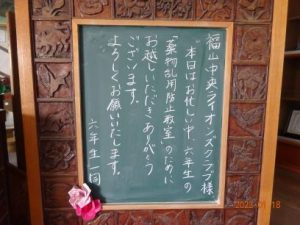 福山中央ライオンズクラブ様
本日はお忙しい中、六年生の
「薬物乱用防止教室」のために
お越しいただきありがとう
ございます。
よろしくお願いいたします。
六年生一同